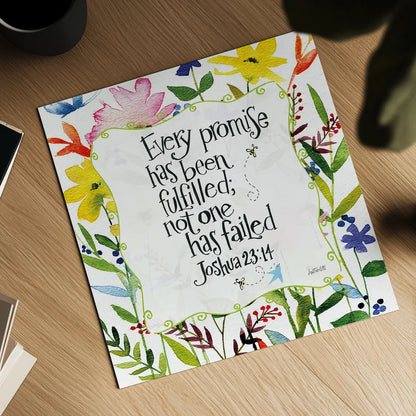 Every promise
has been
fulfilled;
not one
has failed
Joshua 23:14